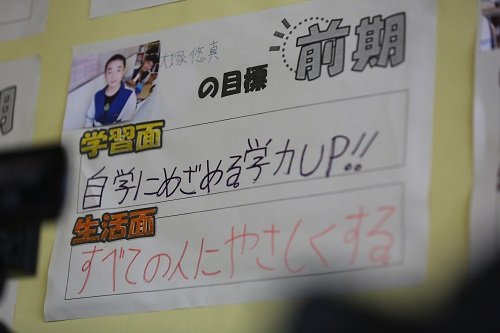 大塚悠真
の目標
前期
学習面
自学にめざめる学力UP!!
生活面
すべての人にやさしくする